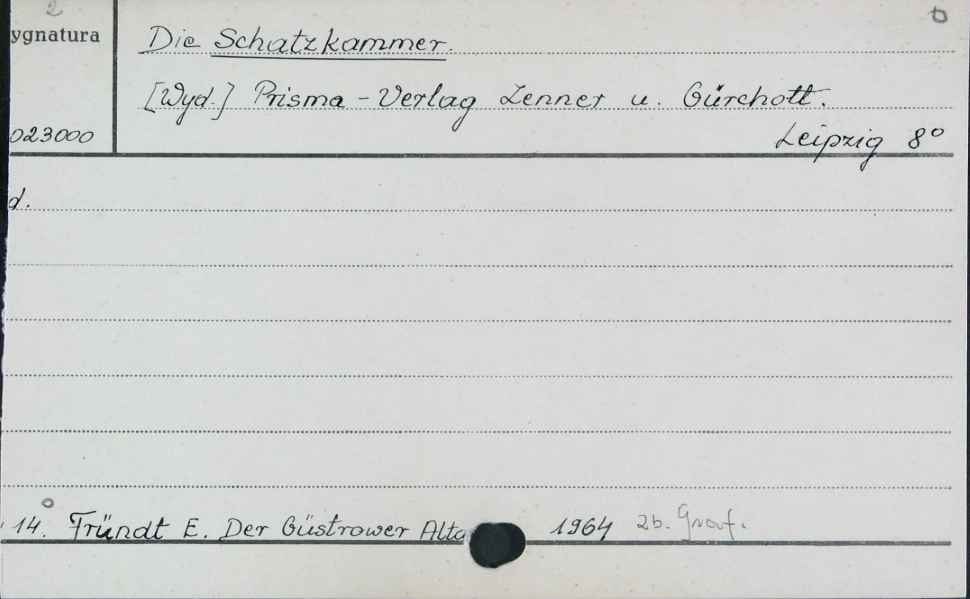 2
ygnatura
Die Schatzkammer.
[Wyd.] Prisma-Verlag Zenner u. Gürchott.
023000
Leipzig 8°
d.
14. Fründt E. Der Güstrower Alta 1964 Zb. Graf.